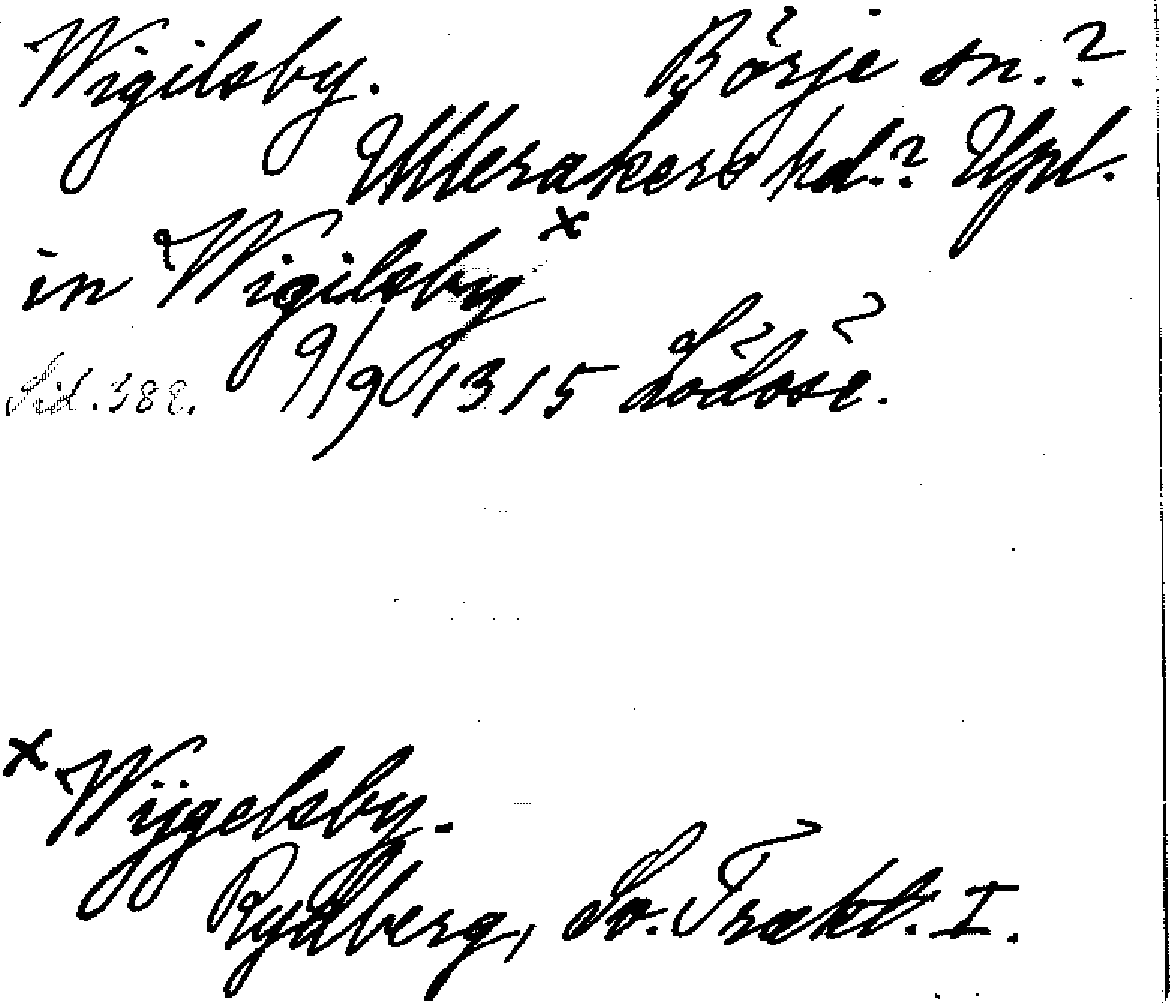 Wigilsby. Börje sn.?
Ullerakers hd.? Upl.
in Wigilsby x
Sid. 388. 9/9 1315 Lödöse.
x Wijgelsby.
Rydberg, Sv. Trakt. I.